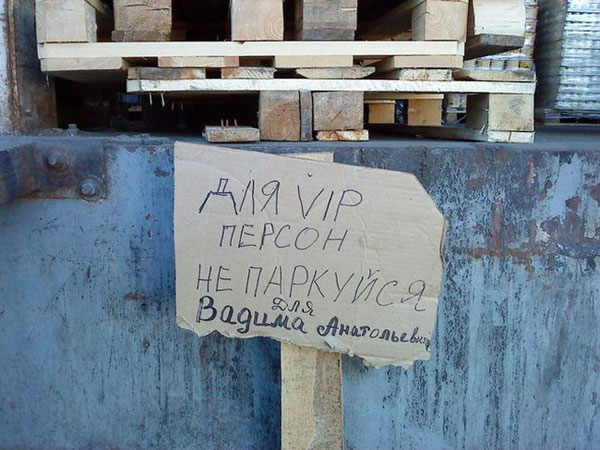 ДЛЯ VIP
ПЕРСОН
НЕ ПАРКУЙСЯ
ДЛЯ
Вадима Анатольевича